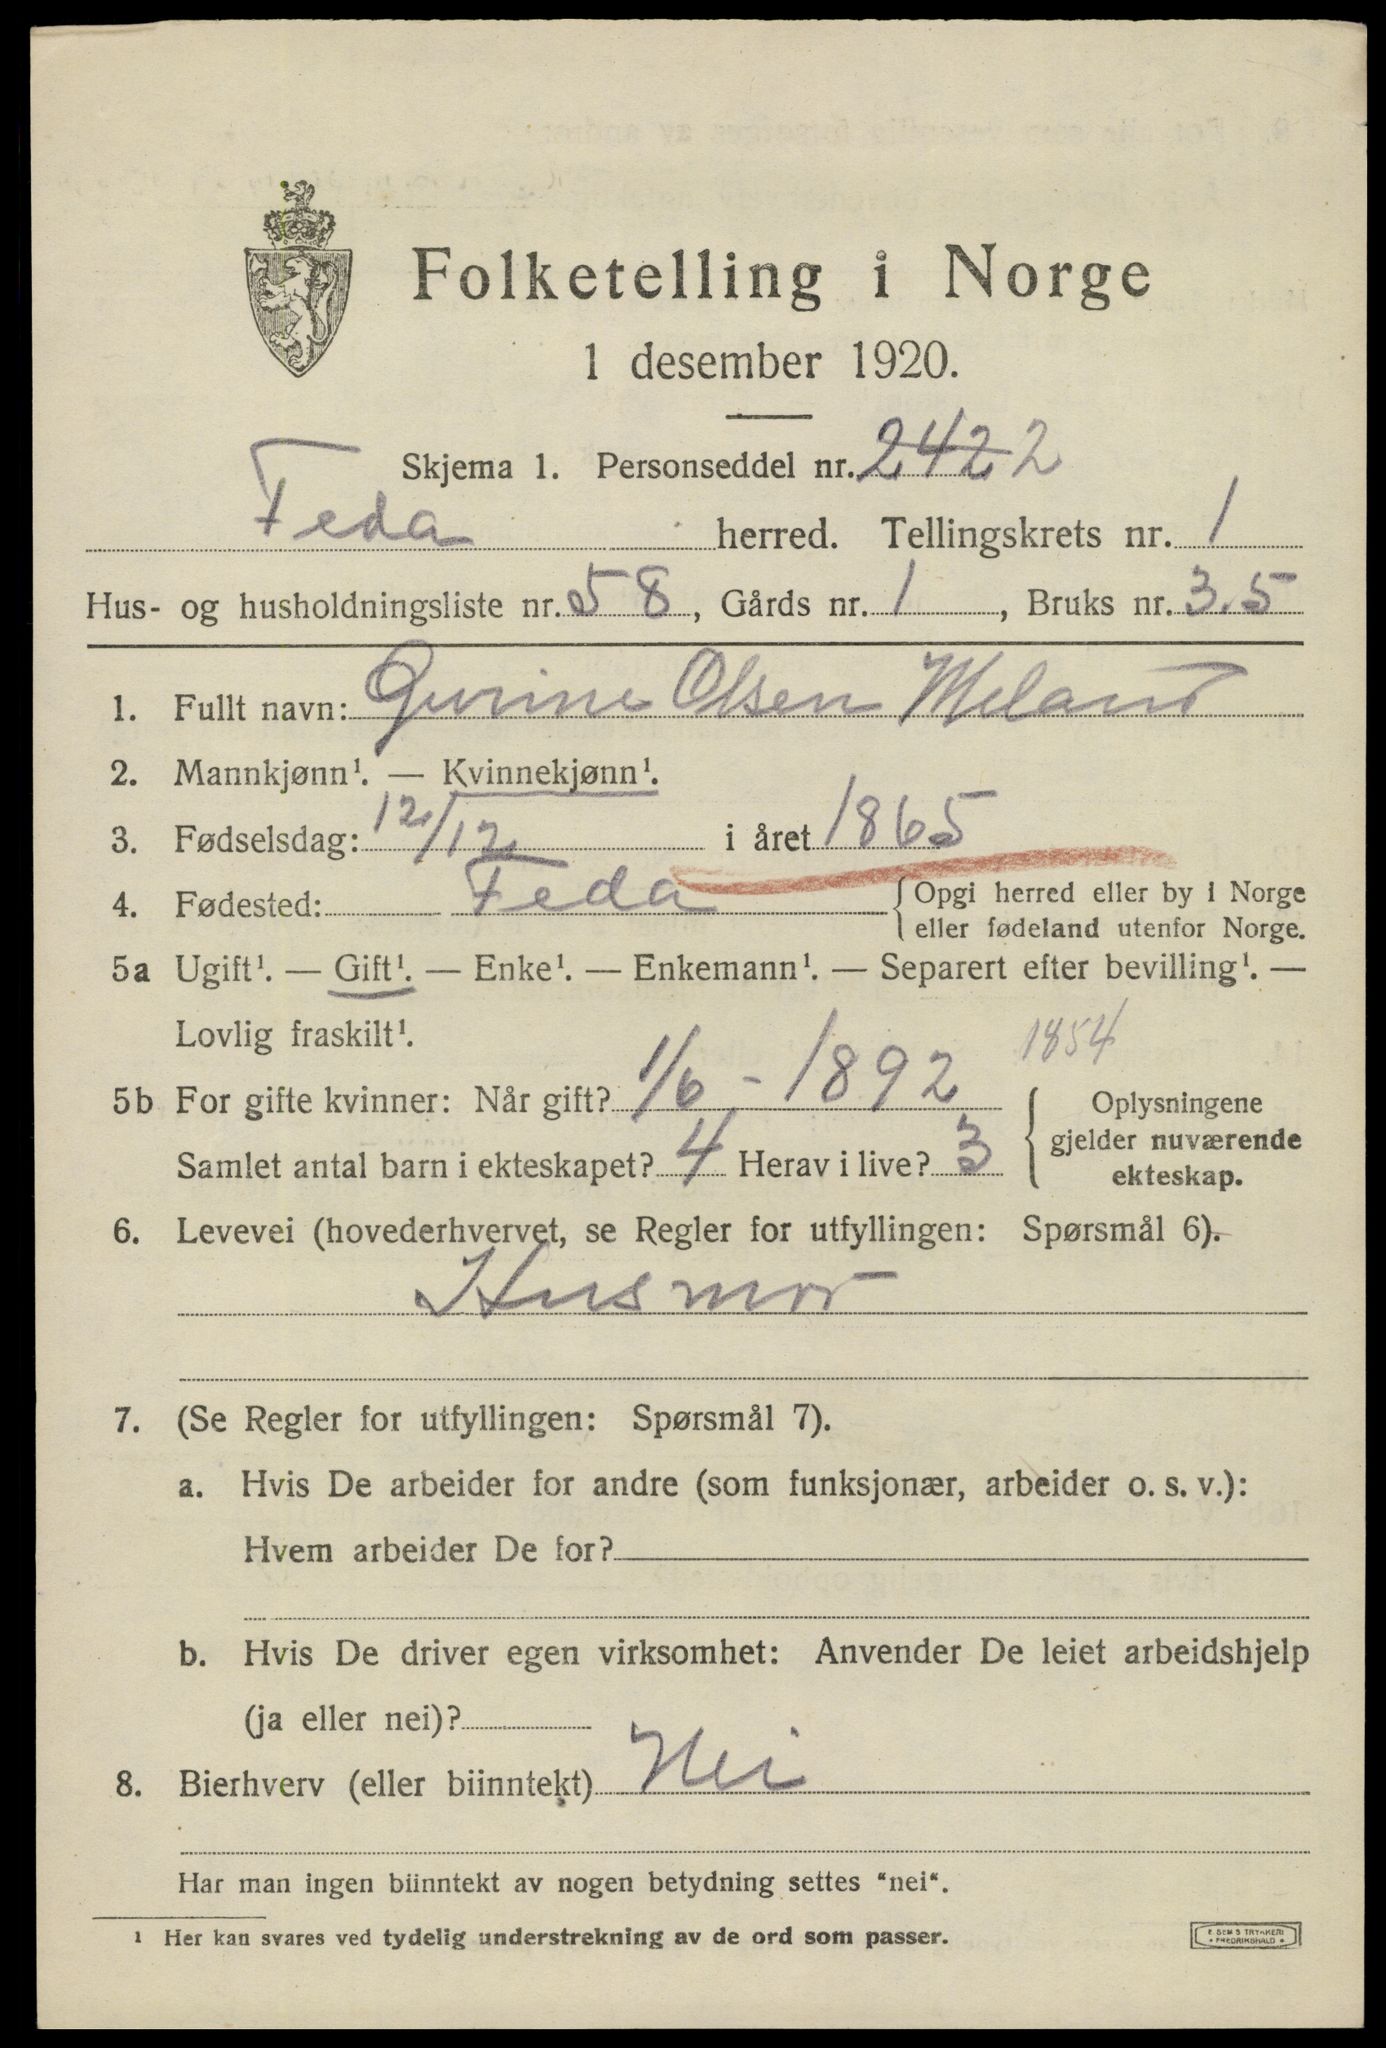 Folketelling i Norge
1 desember 1920.
Skjema 1. Personseddel nr. 242 2
Feda herred. Tellingskrets nr. 1
Hus- og husholdningsliste nr. 58, Gårds nr. 1, Bruks nr. 3.5
1. Fullt navn: Gurine Olsen Meland
2. Mannkjønn¹. — Kvinnekjønn¹.
3. Fødselsdag: 12/12 i året 1865
4. Fødested: Feda { Opgi herred eller by i Norge
eller fødeland utenfor Norge.
5a Ugift¹. — Gift¹. — Enke¹. — Enkemann¹. — Separert efter bevilling¹. —
Lovlig fraskilt¹.
1854
5b For gifte kvinner: Når gift? 1/6 - 1892
Samlet antal barn i ekteskapet? 4 Herav i live? 3
{ Oplysningene
gjelder nuværende
ekteskap.
6. Levevei (hovederhvervet, se Regler for utfyllingen: Spørsmål 6).
Husmor
7. (Se Regler for utfyllingen: Spørsmål 7).
a. Hvis De arbeider for andre (som funksjonær, arbeider o. s. v.):
Hvem arbeider De for?
b. Hvis De driver egen virksomhet: Anvender De leiet arbeidshjelp
(ja eller nei)?
8. Bierhverv (eller biinntekt) Nei
Har man ingen biinntekt av nogen betydning settes "nei".
¹ Her kan svares ved tydelig understrekning av de ord som passer.
E SEM'S TRYKKERI
• FREDRIKSHALD •